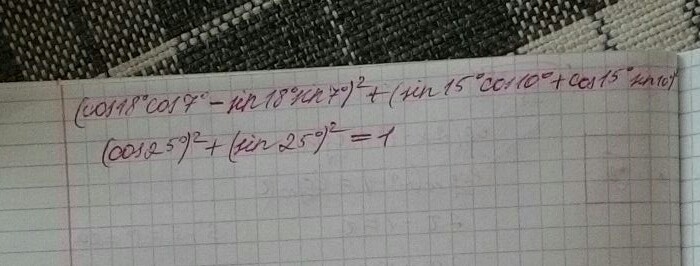 (cos18°cos7° - sin18°sin7°)² + (sin15°cos10° + cos15°sin10°)²
(cos25°)² + (sin25°)² = 1